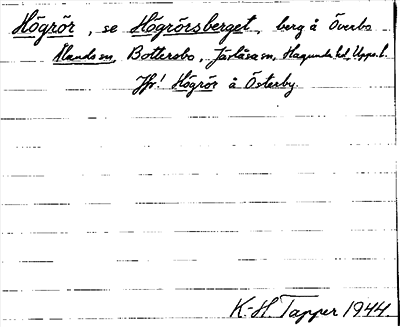 Högrör, se Högrörsberget, berg å Överbo
Ålands sn, Bottersbo, Järlåsa sn, Hagunda hd, Upps. l.
Jfr! Högrör å Österby.
K.-H. Tapper 1944.